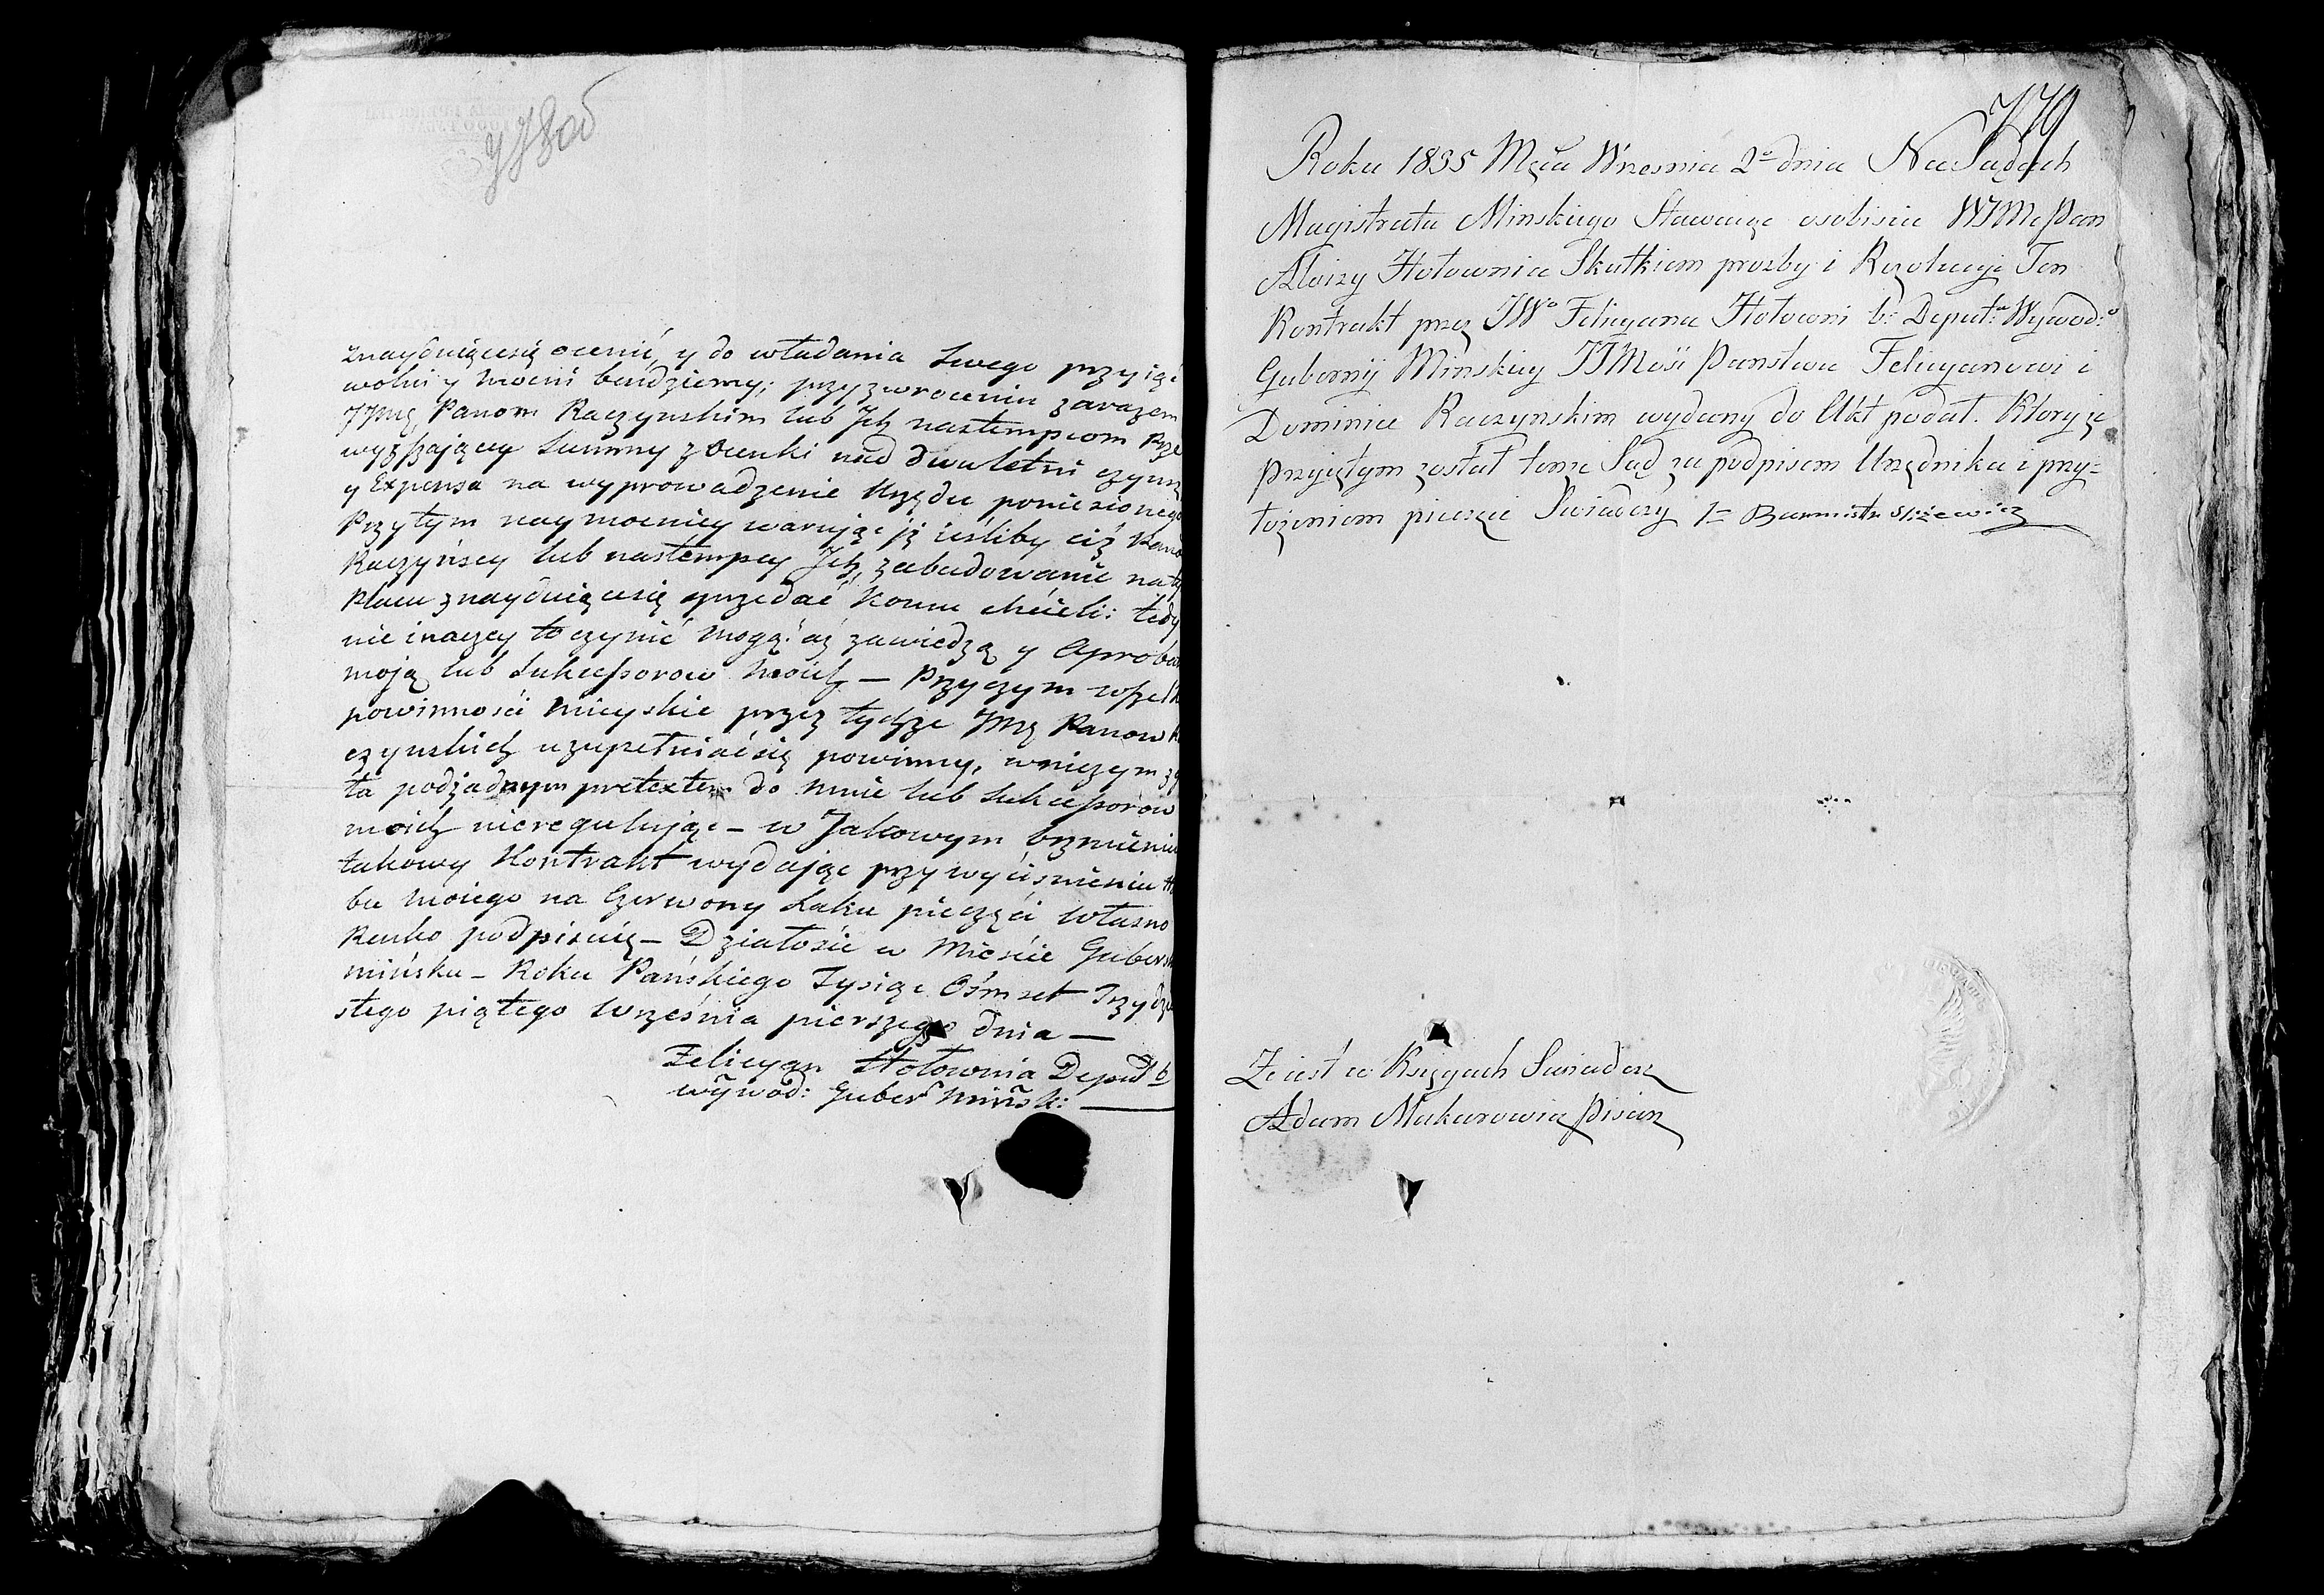 778 об
znayduiącesię ocenić, y do władania Swego przyiąć
wolni y mocni bendziemy; przy zwroceniu zarazem
JJmę Panom Raczynskim lub Jch nastempcom Prze
wyższaiącey Summy z Ocenki nad dwuletni czynsz
y Expensa na wyprowadzenie Urzędu poniesionego
Przytym naymocniey waruiąc iż ieśliby ciż Pano
Raczyńscy lub nastempcy Jch, zabudowanie na ty
Placu znayduiącesię sprzedać komu chcieli: tedy
nie inaczey to czynić mogą: aż zawiedzą y Aprobat
moją lub Sukcessorow moich — Przyczym wszelk
powinności mieyskie przez tychże JMę Panow Ra
czynskich uzupełniać się powinny, w niczym zg
ła podżadnym pretextem do mnie lub Sukcessorow
moich nieregulując — w Jakowym brzmieniu
takowy Kontrakt wydając przy wyciśnieniu He
bu moiego na Czerwony Laku pieczęci własno
Renko podpisuię — Działosie w Mieście Gubersk
mińsku — Roku Pańskiego Tysiąc Ośmset Trzydzie
stego piątego Września pierszego dnia —
Felicyan Hołownia Deput b
wywod: Guber Mińsk: —
779
Roku 1835 Mca Wrzesnia 2º dnia Na Sądach
Magistratu Minskiego Stawaiąc osobiscie WJMcPan
Aloizy Hołownia Skutkiem prozby i Rezolucyi Ten
Kontrakt przez JWº Felicyana Hołowni b: Deput: Wywod:
Gubernij Minskiey JJMść Panstwu Felicyanowi i
Dominice Raczynskim wydany do Akt podał. Który iż
Przyiętym został tenże Sąd za podpisem Urzędnika i przy-
łożeniem pieczęci Swiadczy Burmistr
Ze iest w Księgach Swiadczę
Adam Makarowicz Pisarz